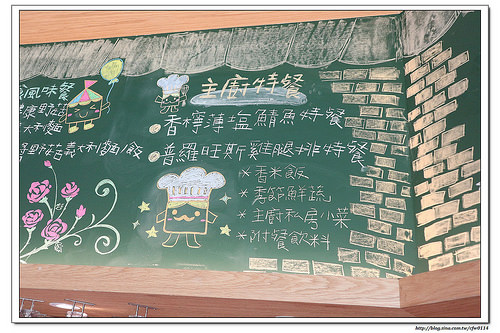 風味餐
主廚特餐
香檸薄塩鯖魚特餐
普羅旺斯雞腿排特餐
*香米飯
*季節鮮蔬
*主廚私房小菜
*附餐飲料
http://blog.sina.com.tw/rfw0114